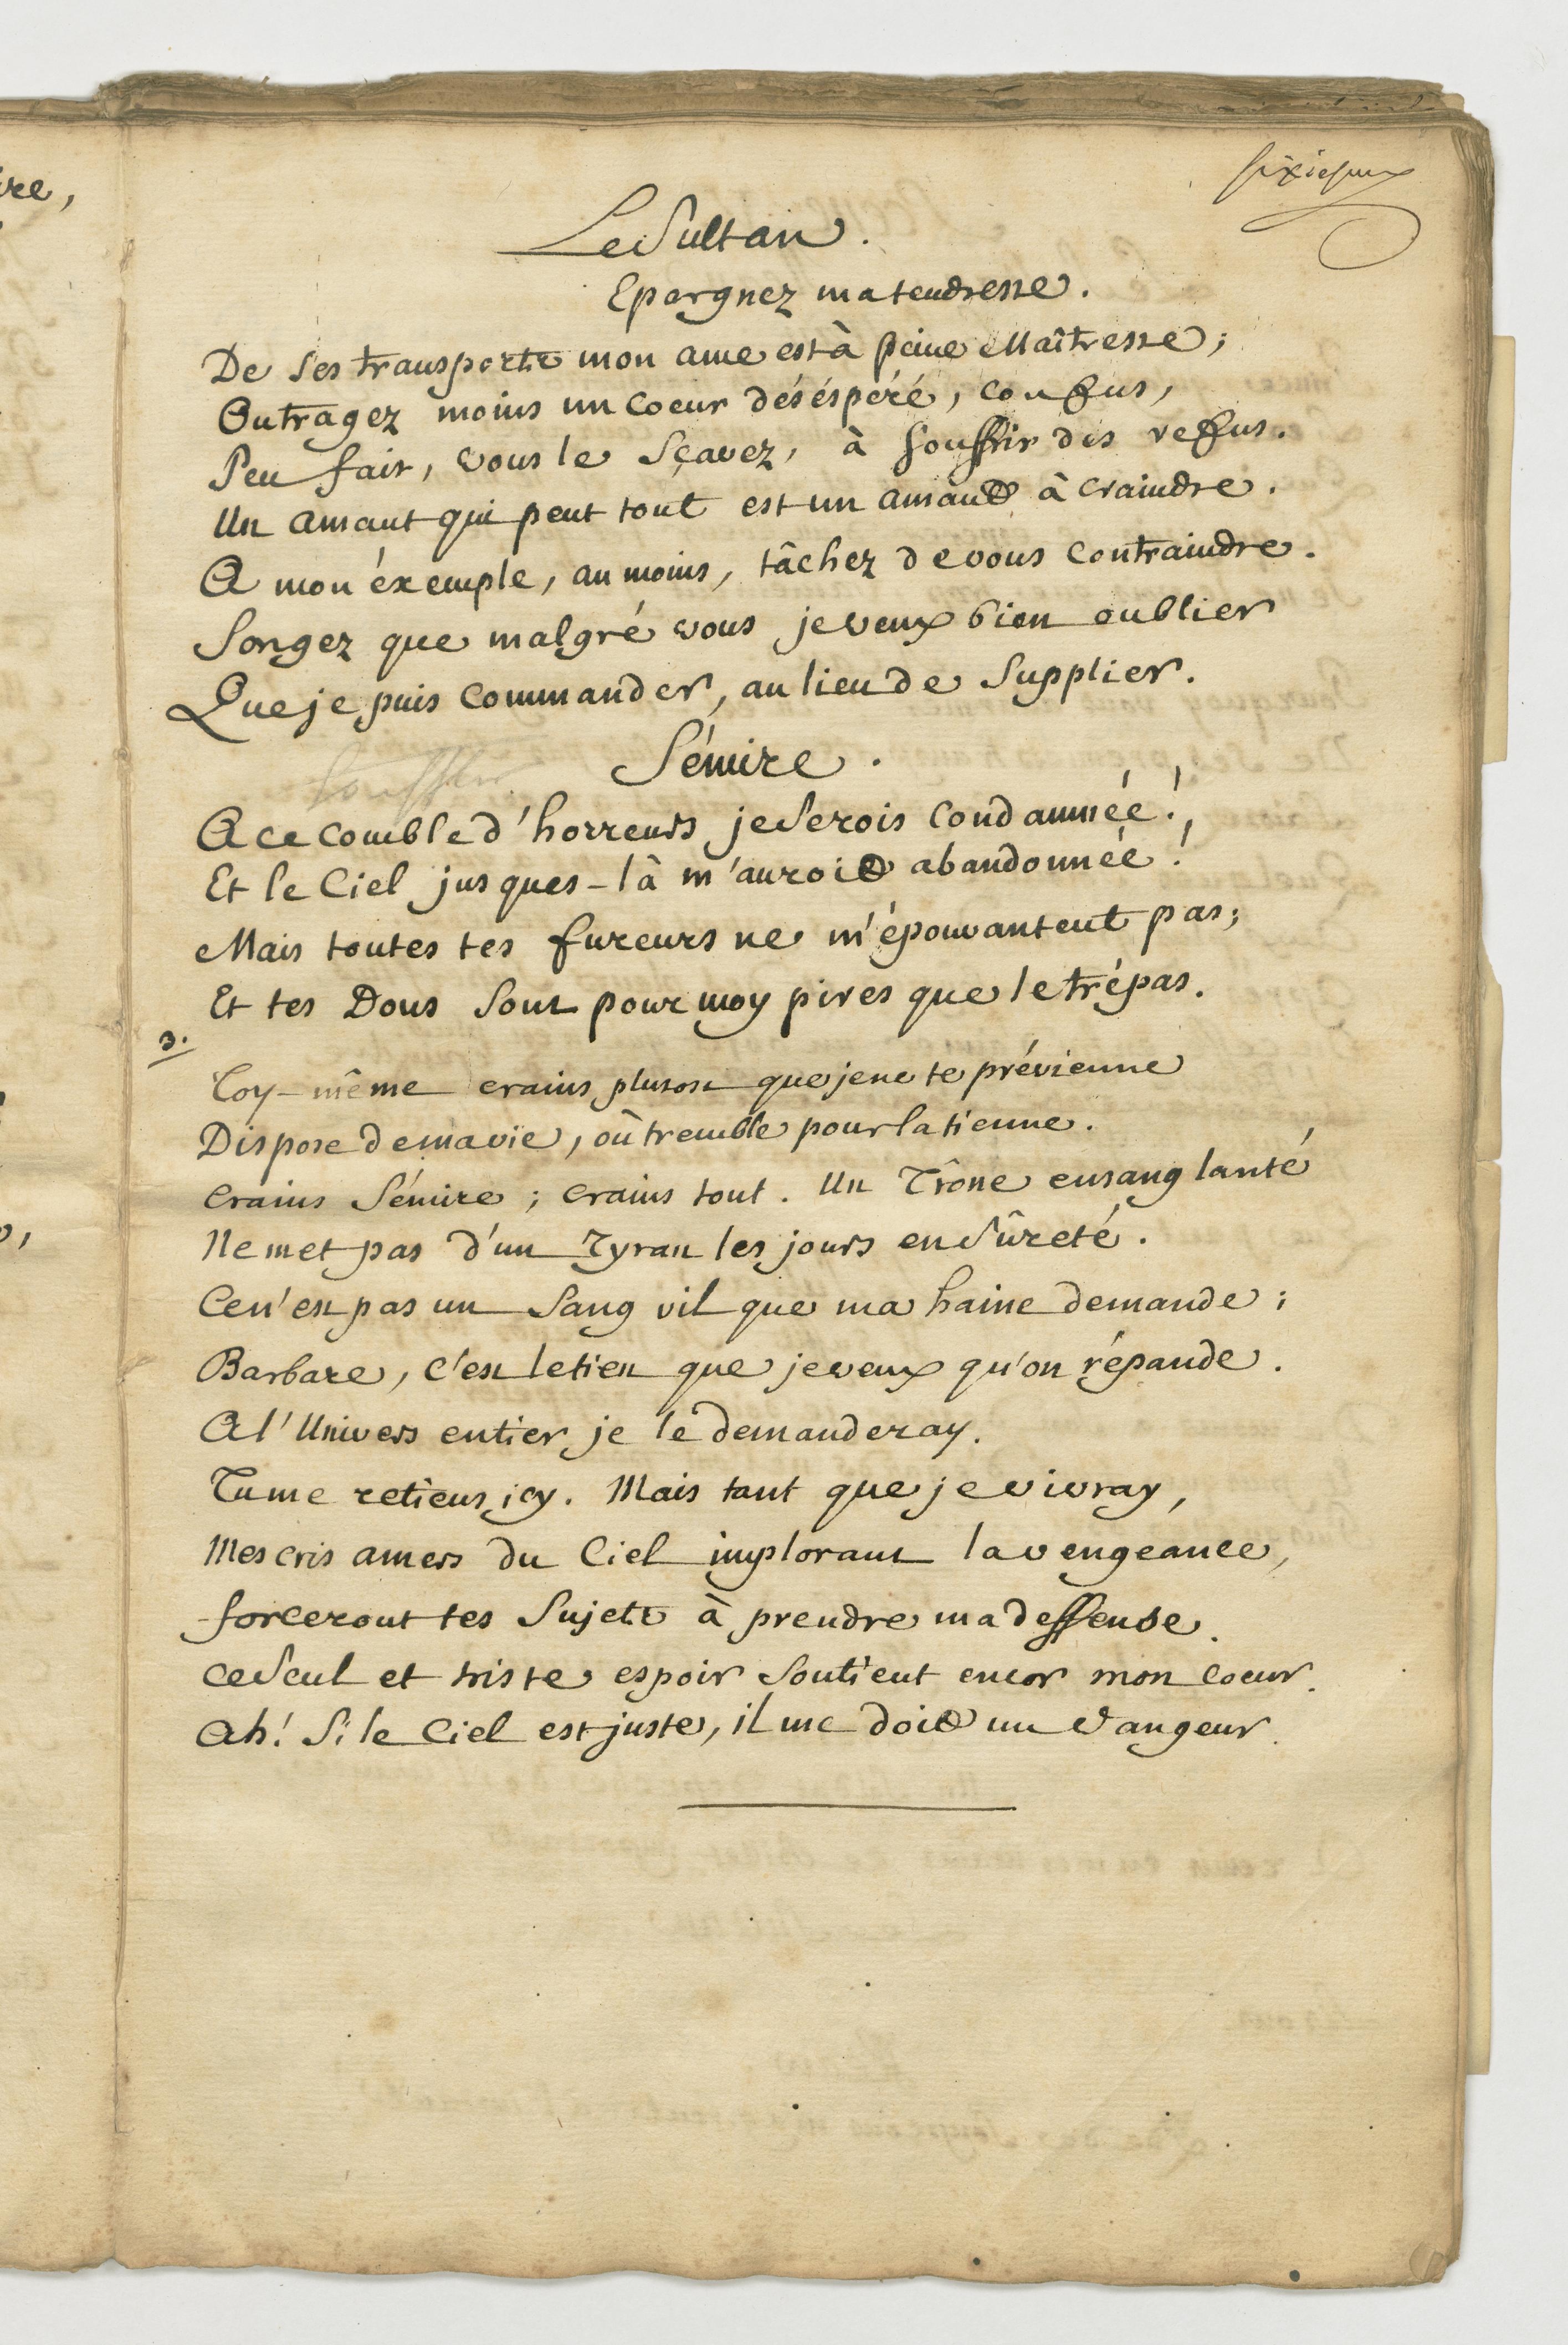 sixiesme
Le Sultan.
Epargnez ma tendresse.
De ses transports mon ame est à peine Maîtresse;
Outragez moins un coeur désésperé, confus,
Peu fait, vous le sçavez, à souffrir des refus.
Un amant qui peut tout est un amant à craindre.
A mon éxemple, au moins, tâchez de vous contraindre.
Songez que malgré vous je veux bien oublier
Que je puis commander, au lieu de supplier.
Sémire.
A ce comble d'horreurs je serois condamnée!,
Et le Ciel jusques-là m'auroit abandonnée!
Mais toutes tes fureurs ne m'épouvantent pas;
Et tes Dons sont pour moy pires que le trépas.
3.
Toy-même crains plutost que je ne te prévienne
Dispose de ma vie, où tremble pour la tienne.
Crains Sémire; crains tout. Un Trône ensanglanté
Ne met pas d'un Tyran les jours en sûreté.
Ce n'est pas un sang vil que ma haine demande;
Barbare, c'est le tien que je veux qu'on répande.
A l'Univers entier je le demanderay.
Tu me retiens icy. Mais tant que je vivray,
Mes cris amers du Ciel implorant la vengeance,
forceront tes Sujets à prendre ma deffense.
Ce seul et triste espoir soutient encor mon coeur.
Ah! Si le Ciel est juste, il me doit un Vangeur.